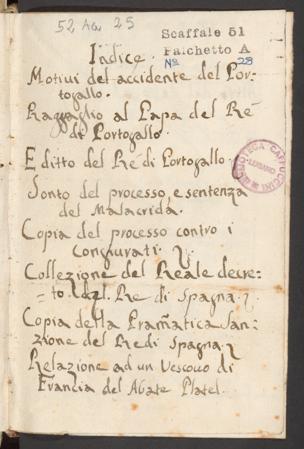 52 Aa. 25
Scaffale 51
Palchetto A
No 28
Indice.
Motiui del accidente del Por=
togallo.
Ragguaglio al Papa del Re
di Portogallo.
Editto del Re di Portogallo.
BIBLIOTECA CAPPUCCINI
LUGANO
Sonto del processo, e sentenza
del Malacrida.
Copia del processo contro i
Congiurati.
Collezione del Reale decre=
=to del Re di Spagna.
Copia della Pramatica San=
zione del Re di Spagna.
Relazione ad un Vescouo di
Francia del Abate Platel.